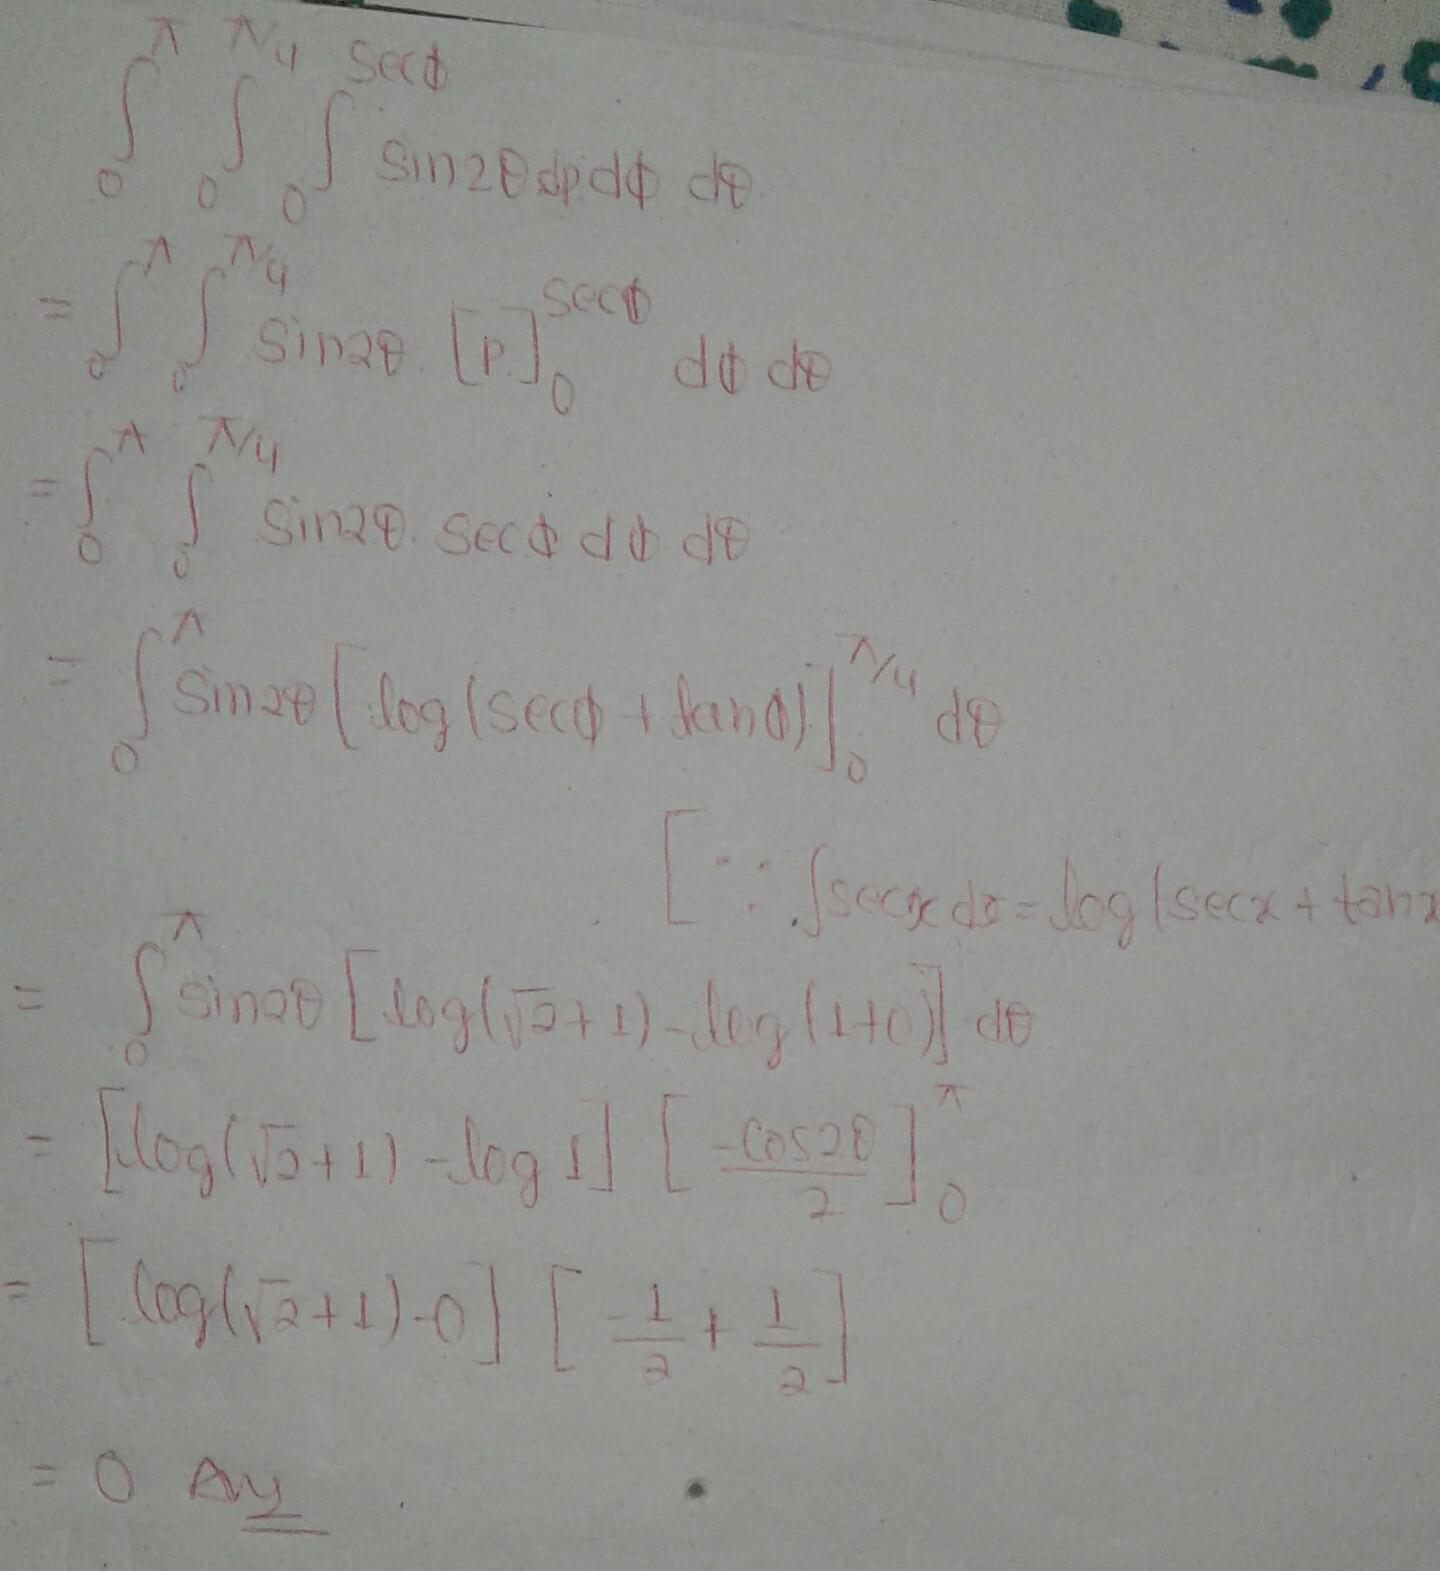 ∫₀^π ∫₀^π/4 ∫₀^secϕ sin2θ dρ dϕ dθ
= ∫₀^π ∫₀^π/4 sin2θ. [ρ]₀^secϕ dϕ dθ
= ∫₀^π ∫₀^π/4 sin2θ. secϕ dϕ dθ
= ∫₀^π sin2θ [log(secϕ + tanϕ)]₀^π/4 dθ
[∵ ∫secx dx = log(secx + tanx
= ∫₀^π sin2θ [log(√2+1) - log(1+0)] dθ
= [log(√2+1) - log 1] [-cos2θ/2]₀^π
= [log(√2+1) - 0] [-1/2 + 1/2]
= 0 Ans